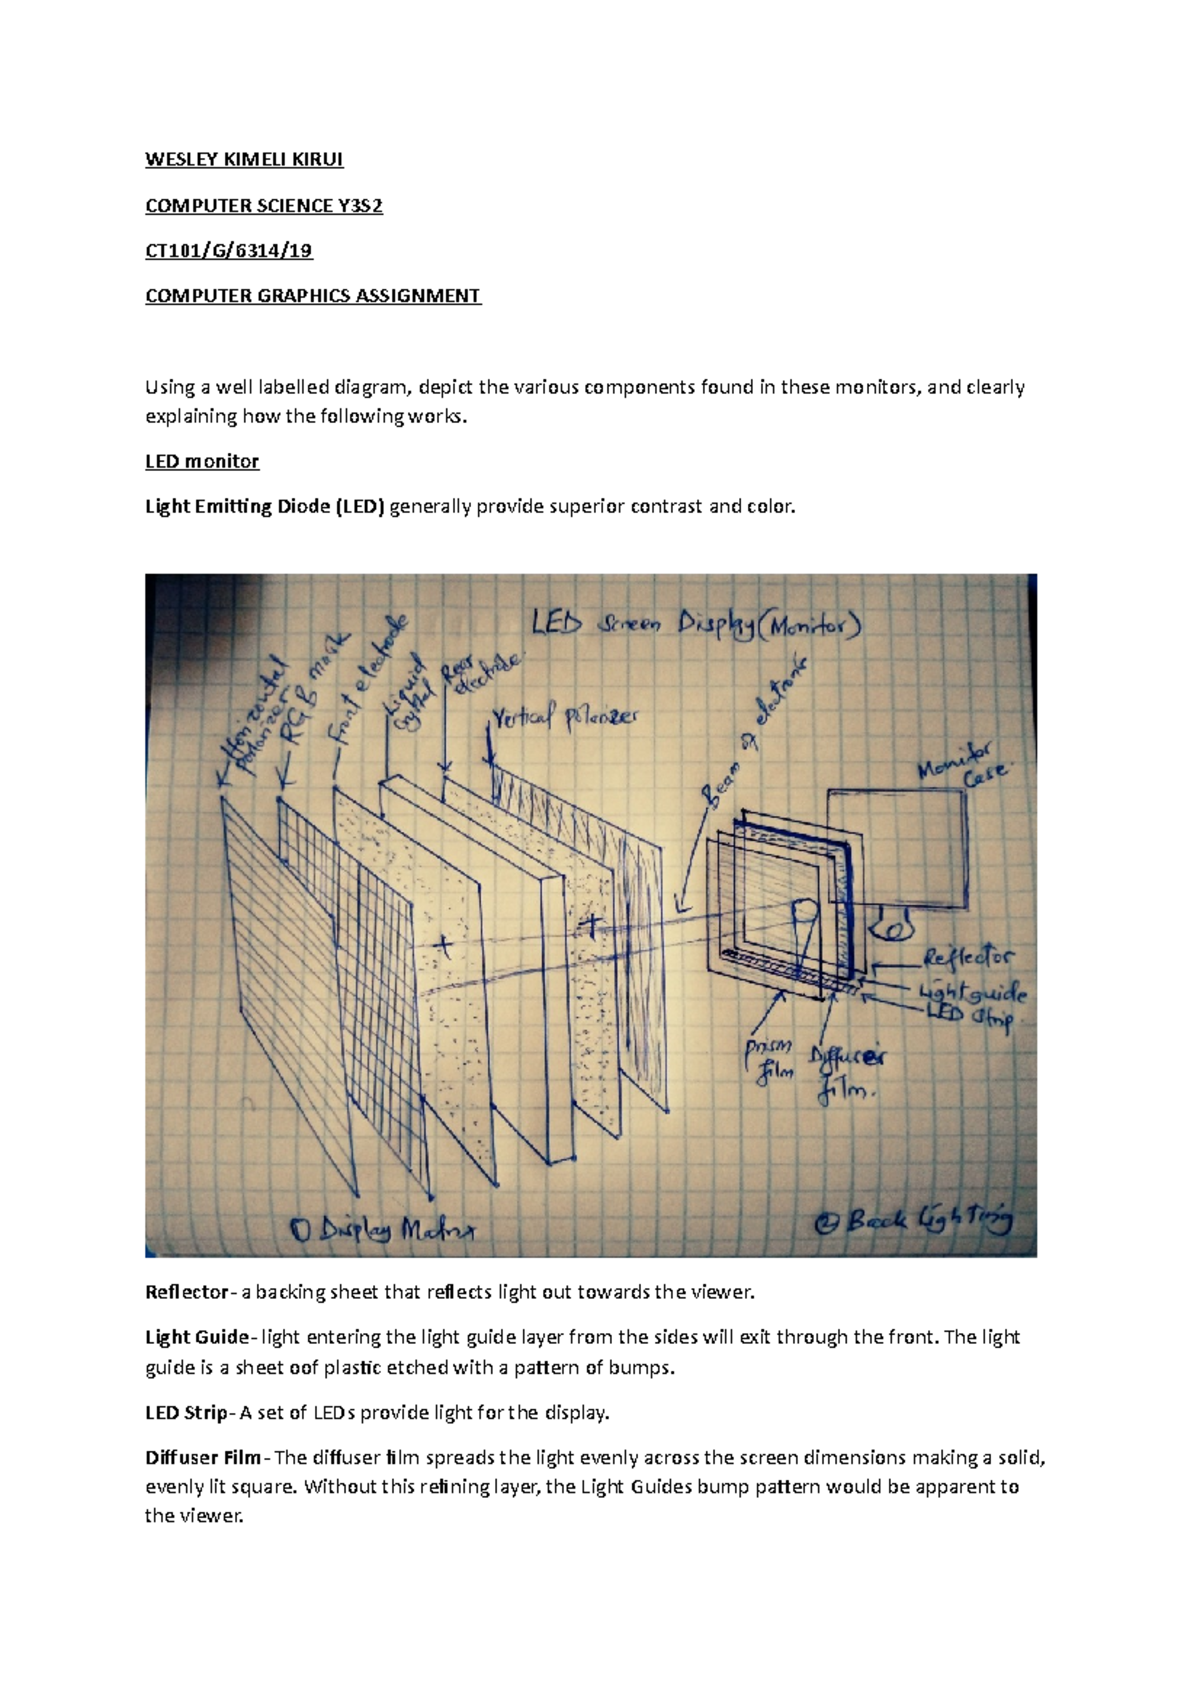 WESLEY KIMELI KIRUI
COMPUTER SCIENCE Y3S2
CT101/G/6314/19
COMPUTER GRAPHICS ASSIGNMENT
Using a well labelled diagram, depict the various components found in these monitors, and clearly
explaining how the following works.
LED monitor
Light Emitting Diode (LED) generally provide superior contrast and color.
LED Screen Display(Monitor)
Horizontal
Polarizer
RGB mask
Front electrode
Liquid
Crystal
Rear
electrode
Vertical polarizer
Beam of electrons
Monitor
Case
Reflector
Light guide
LED Strip
Prism
film
Diffuser
film.
① Display Matrix
② Back Lighting
Reflector- a backing sheet that reflects light out towards the viewer.
Light Guide- light entering the light guide layer from the sides will exit through the front. The light
guide is a sheet oof plastic etched with a pattern of bumps.
LED Strip- A set of LEDs provide light for the display.
Diffuser Film- The diffuser film spreads the light evenly across the screen dimensions making a solid,
evenly lit square. Without this refining layer, the Light Guides bump pattern would be apparent to
the viewer.